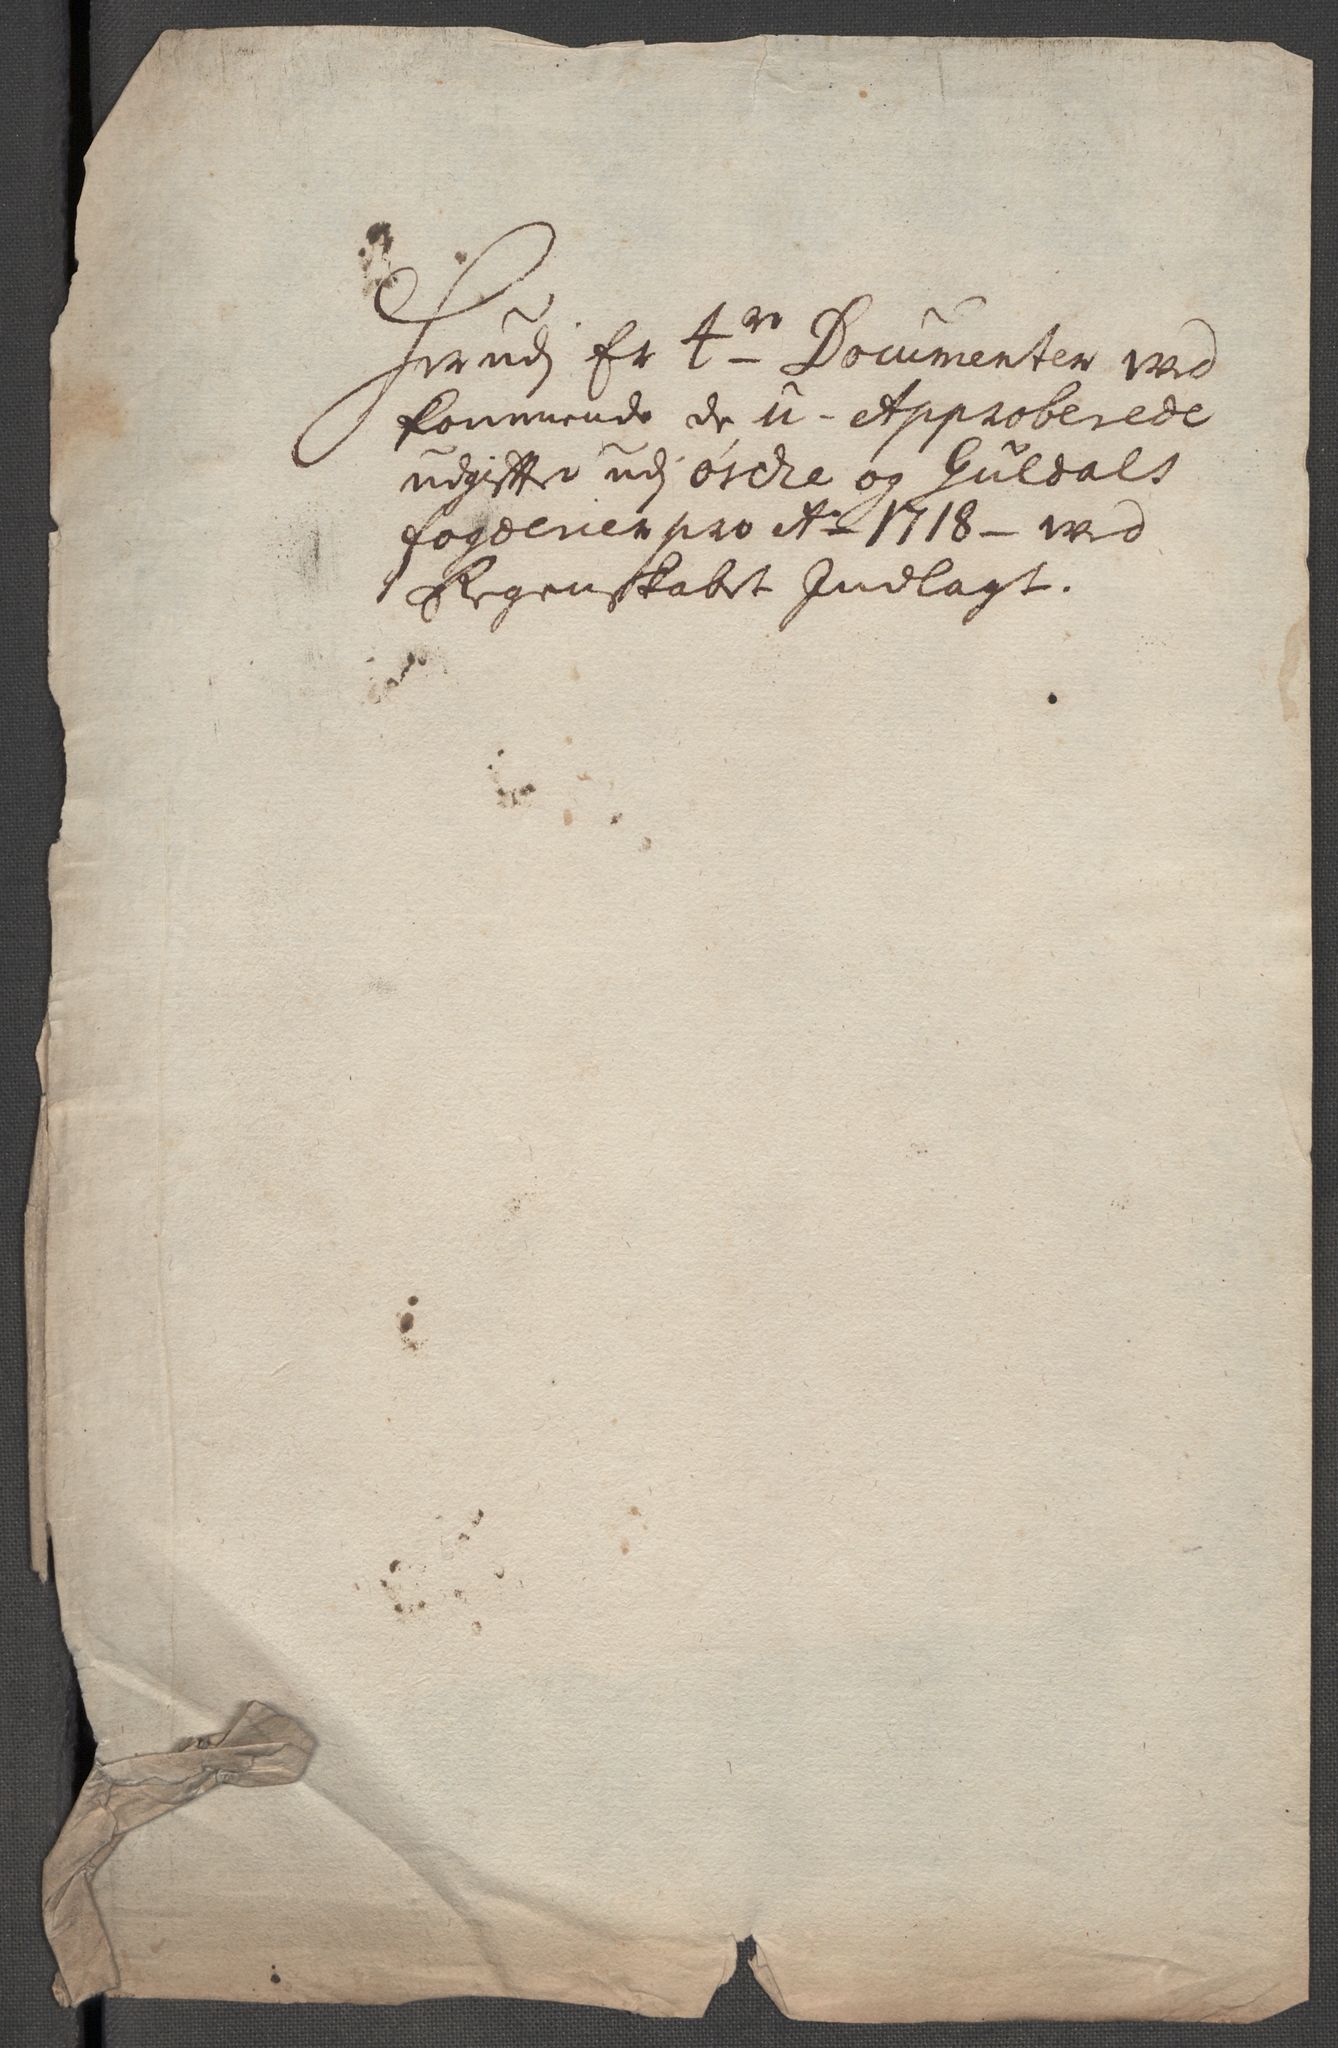 Herudj Er 4re Documenter ved
kommende de u-Approberede
udgiffter udj Østre og Guldals
fogderier pro Ao 1718 – ved
Regenskabet Indlagt.